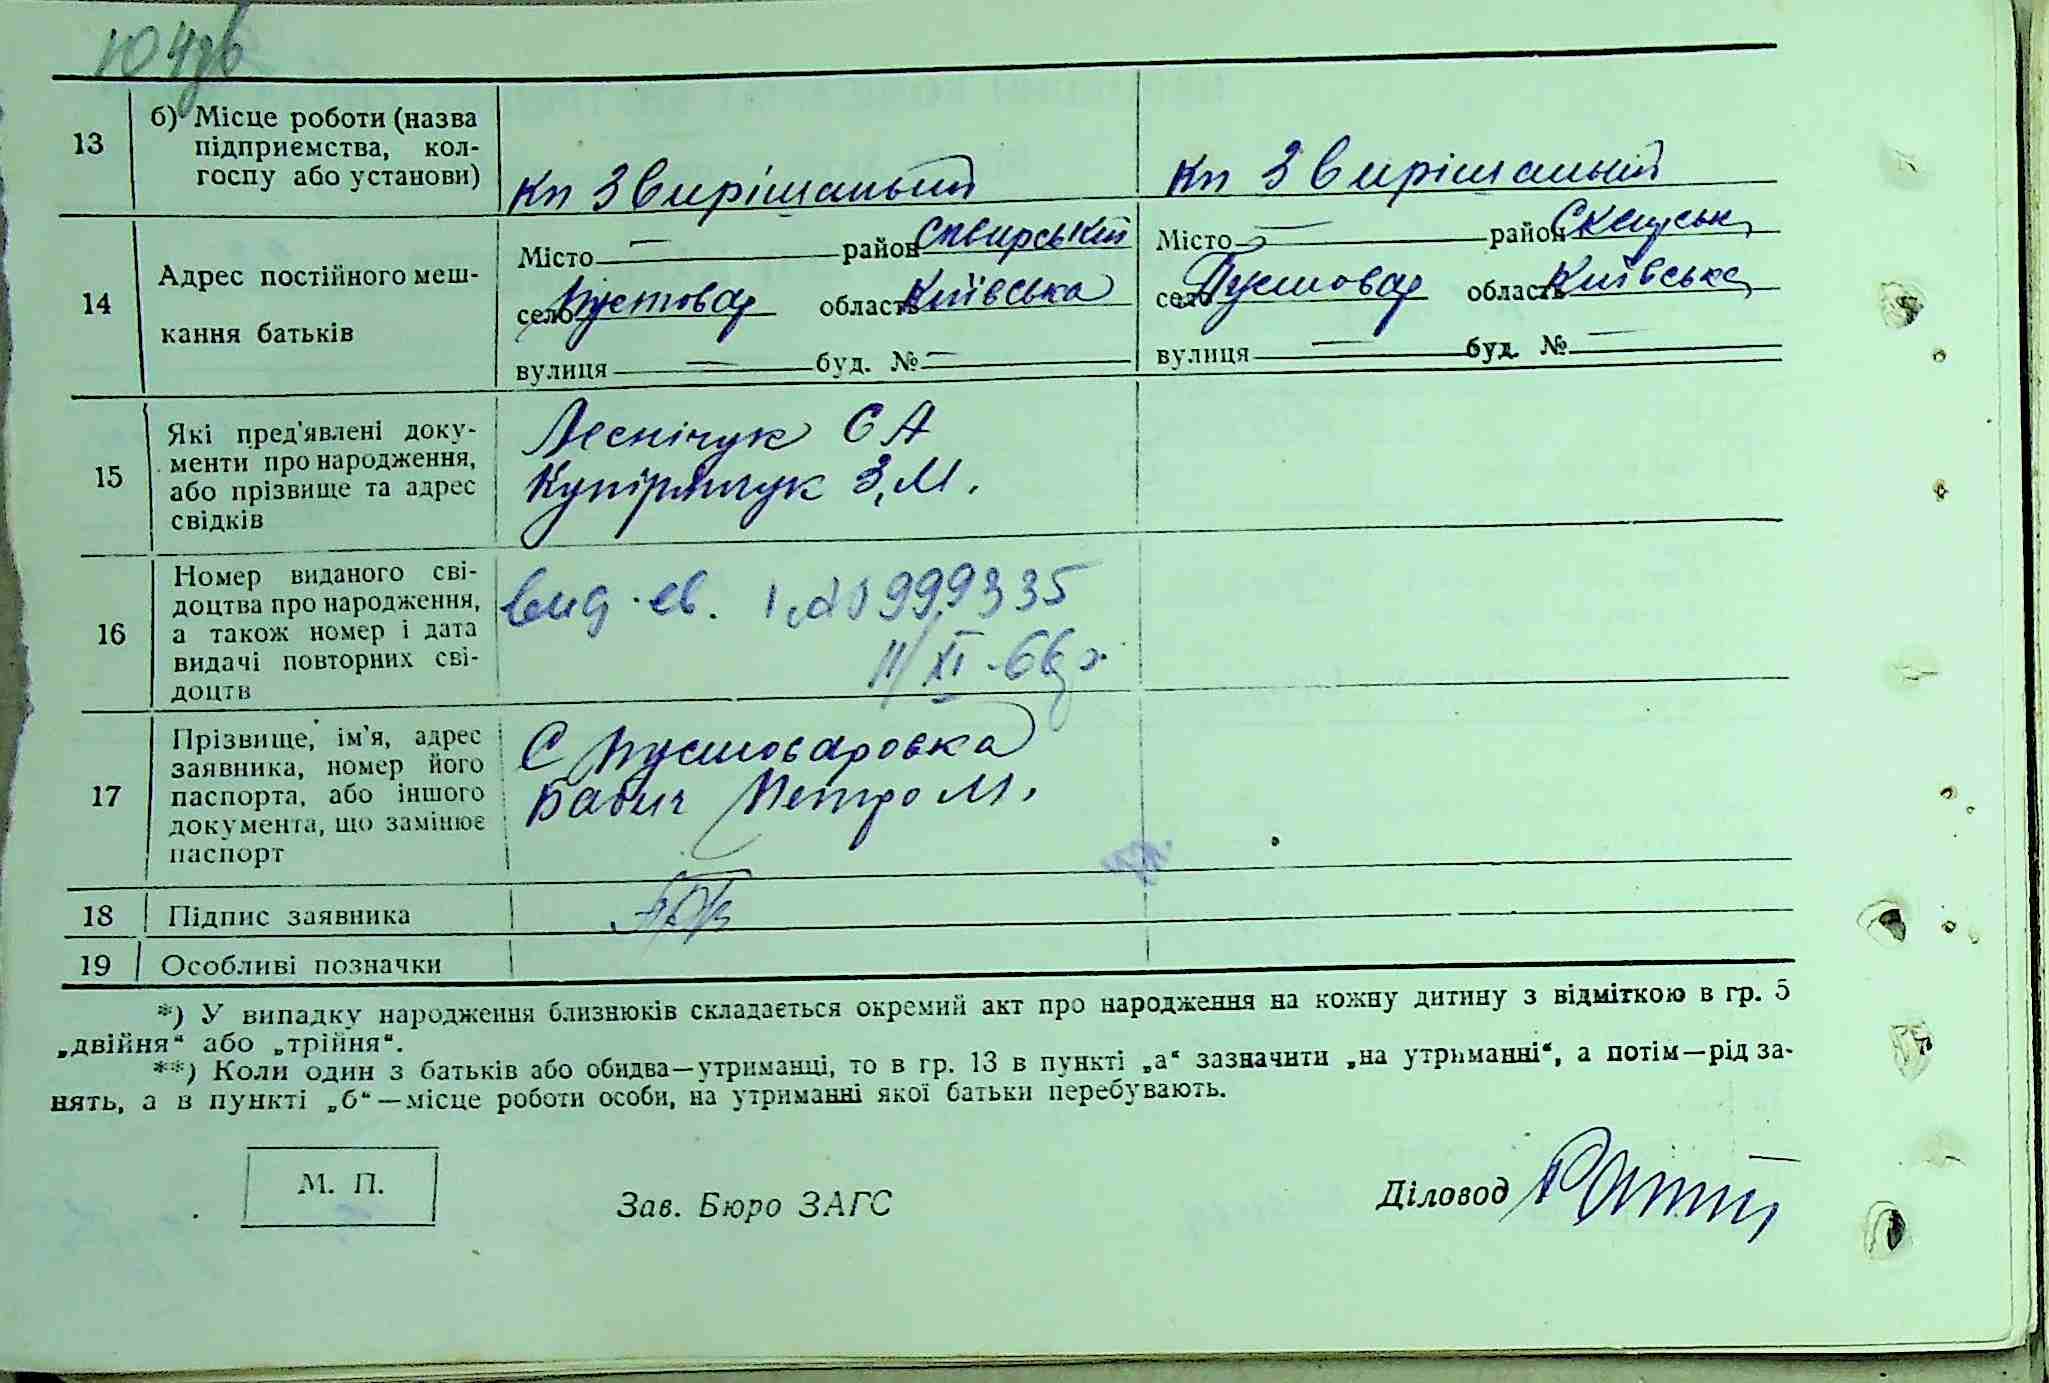 13
б) Місце роботи (назва
підприємства, кол-
госпу або установи)
Кп 3 вирішальний
Кп 3 вирішальний
14
Адрес постійного меш-
кання батьків
Місто — район Сквирський
село Пустовар область Київська
вулиця — буд. № —
Місто — район
село Пустовар область Київська
вулиця — буд. № —
15
Які пред'явлені доку-
менти про народження,
або прізвище та адрес
свідків
Леснічук С А
З. М.
16
Номер виданого сві-
доцтва про народження,
а також номер і дата
видачі повторних сві-
доцтв
вид. св. 999335
11/XI
17
Прізвище, ім'я, адрес
заявника, номер його
паспорта, або іншого
документа, що замінює
паспорт
С Пустоваровка
Бабич Петро М.
18
Підпис заявника
19
Особливі позначки
*) У випадку народження близнюків складається окремий акт про народження на кожну дитину з відміткою в гр. 5
„двійня“ або „трійня“.
**) Коли один з батьків або обидва—утриманці, то в гр. 13 в пункті „а“ зазначити „на утриманні“, а потім—рід за-
нять, а в пункті „б“—місце роботи особи, на утриманні якої батьки перебувають.
М. П.
Зав. Бюро ЗАГС
Діловод